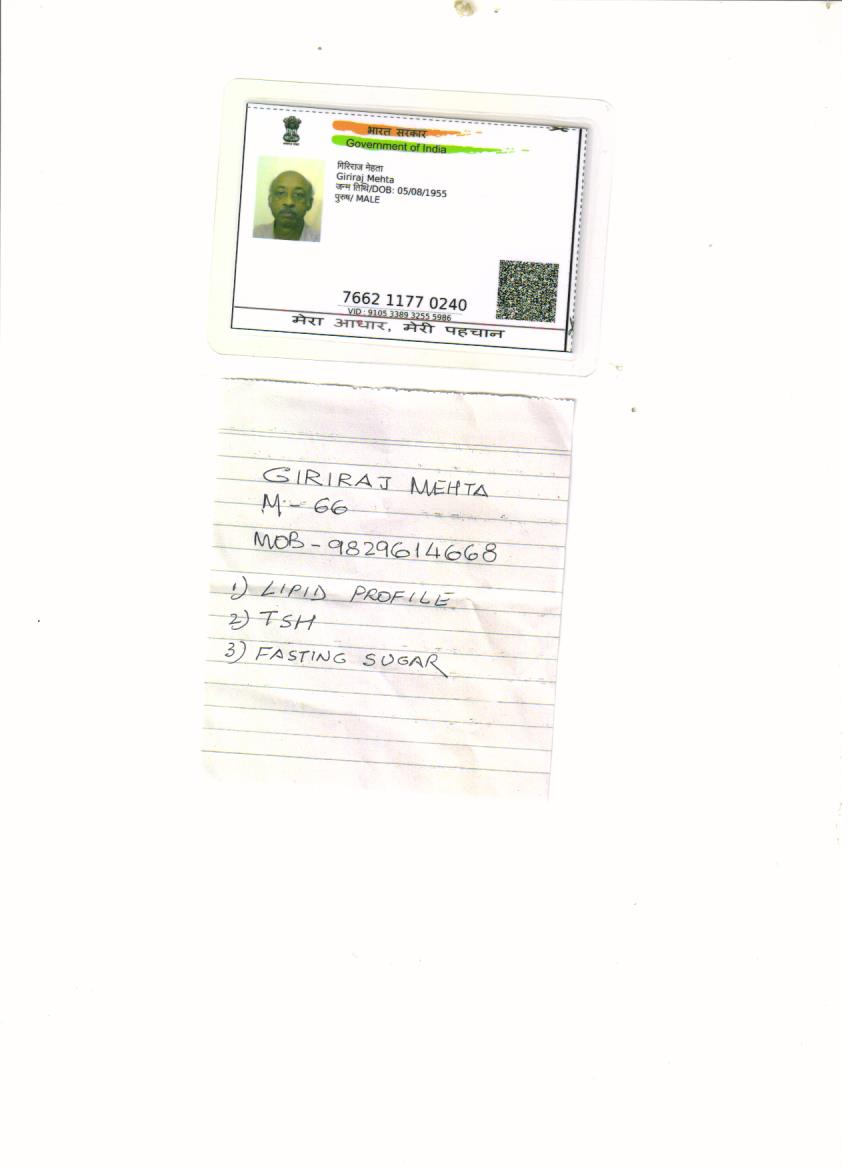 भारत सरकार
Government of India
गिरिराज मेहता
Giriraj Mehta
जन्म तिथि/DOB: 05/08/1955
पुरुष/ MALE
7662 1177 0240
VID : 9105 3389 3255 5986
मेरा आधार, मेरी पहचान
GIRIRAJ MEHTA
M - 66
MOB - 9829614668
1) LIPID PROFILE
2) TSH
3) FASTING SUGAR